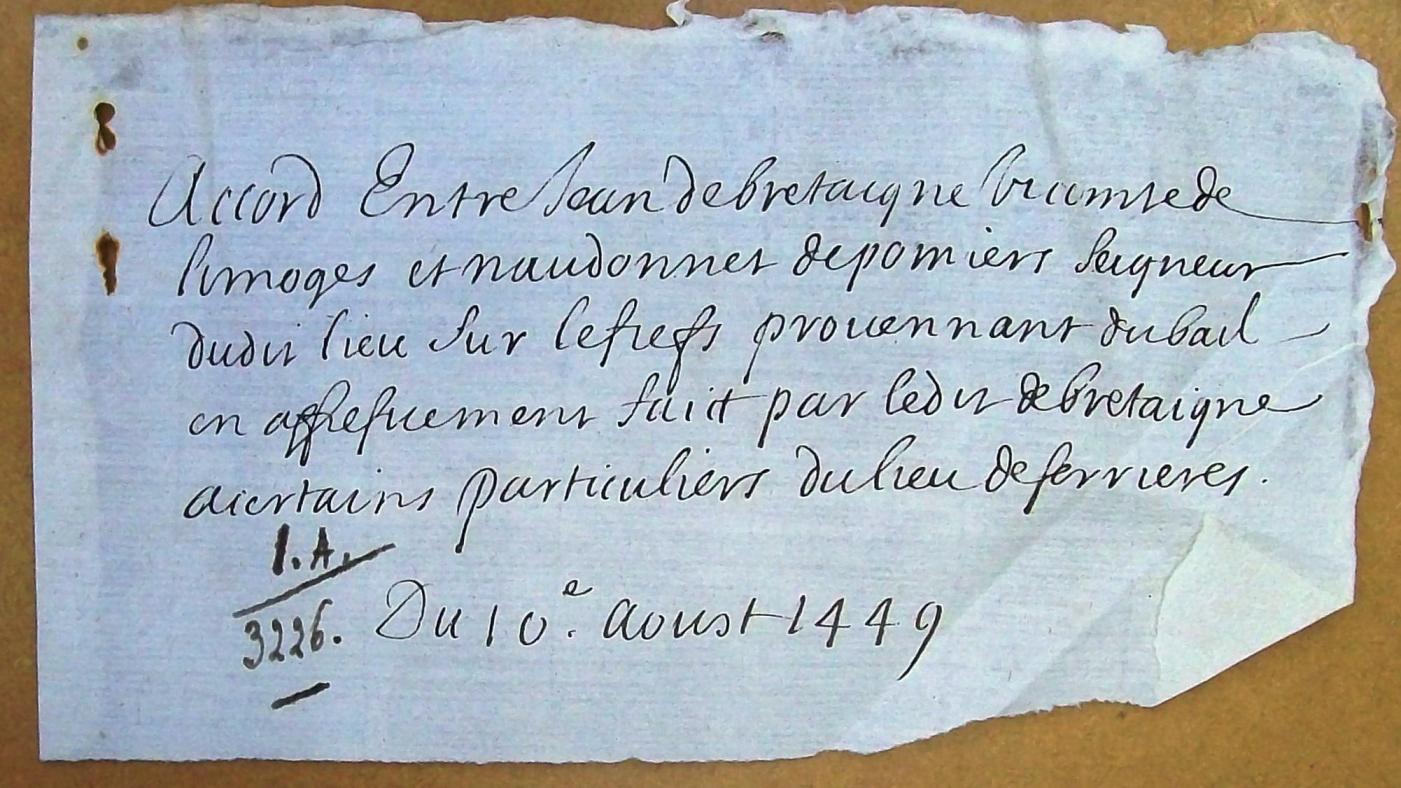 Accord Entre Jean de bretaigne vicomte de
limoges et naudonnet de pomiers seigneur
dudit lieu sur le fiefs prouennant du bail
en affiefuement faict par ledit de bretaigne
a certains particuliers du lieu de ferrieres.
I.A.
3226. Du 10e. aoust 1449